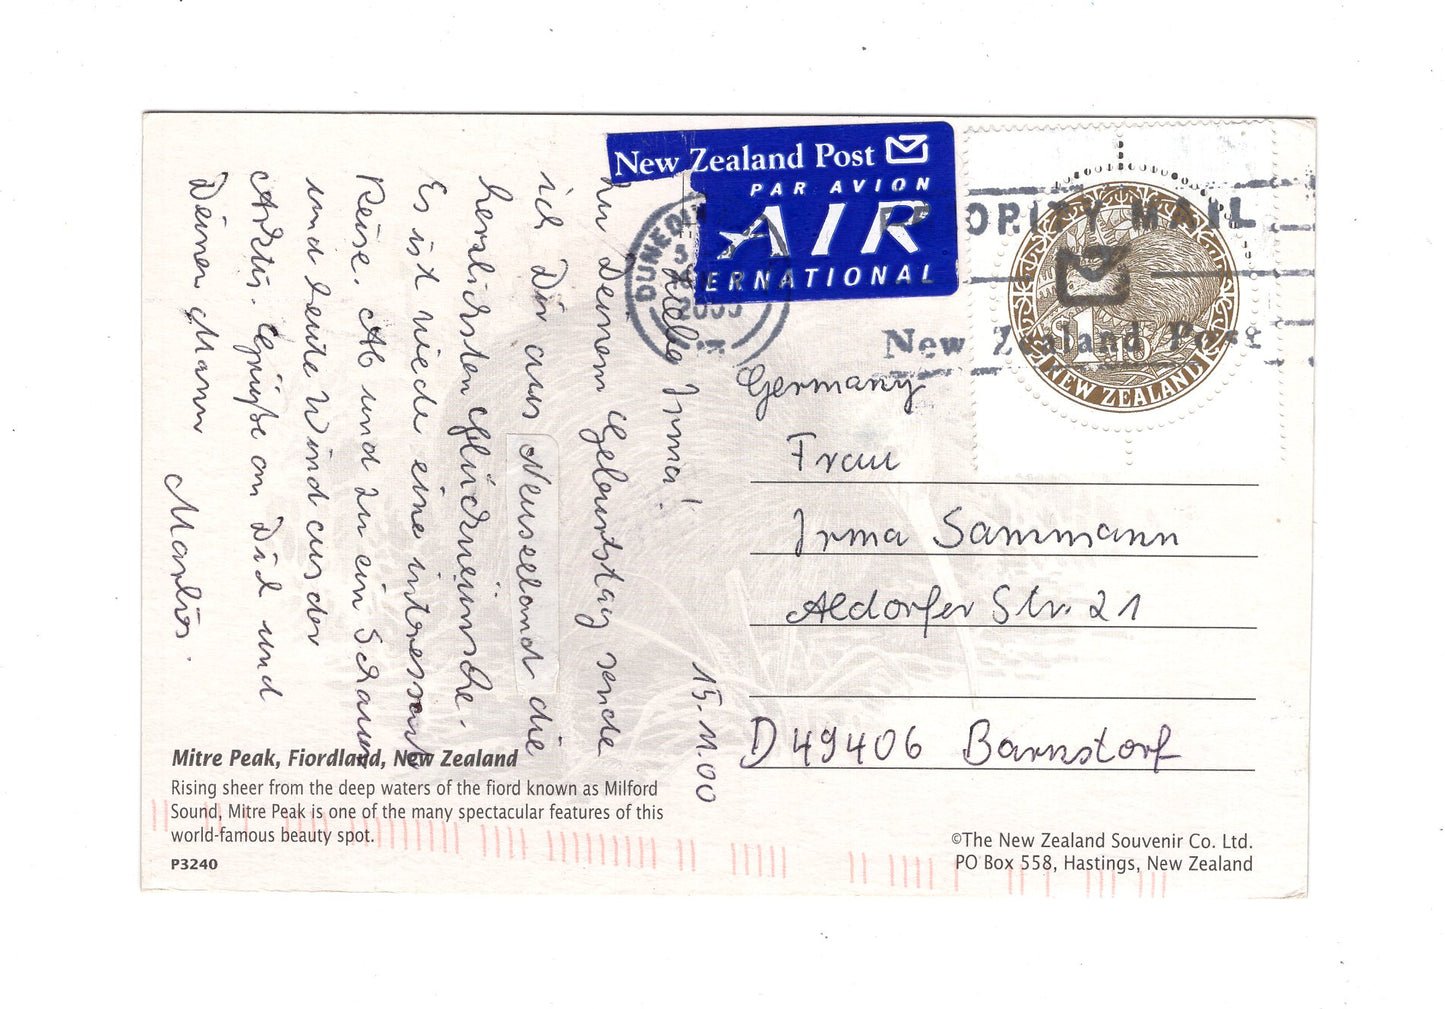 New Zealand Post
PAR AVION
AIR
ERNATIONAL
DUNEDI
PRIORITY MAIL
New Zealand Post
NEW ZEALAND
15.11.00
Liebe Irma!
Zu Deinem Geburtstag sende
ich Dir aus Neuseeland die
herzlichsten Glückwünsche.
Es ist wieder eine interessant
Reise. Ab und zu ein Schauer
und heute Wind aus der
Arktis. Grüße an Dich und
Deinen Mann
Marlis.
Germany
Frau
Irma Sammann
Aldorfer Str. 21
D 49406 Barnstorf
Mitre Peak, Fiordland, New Zealand
Rising sheer from the deep waters of the fiord known as Milford
Sound, Mitre Peak is one of the many spectacular features of this
world-famous beauty spot.
P3240
©The New Zealand Souvenir Co. Ltd.
PO Box 558, Hastings, New Zealand